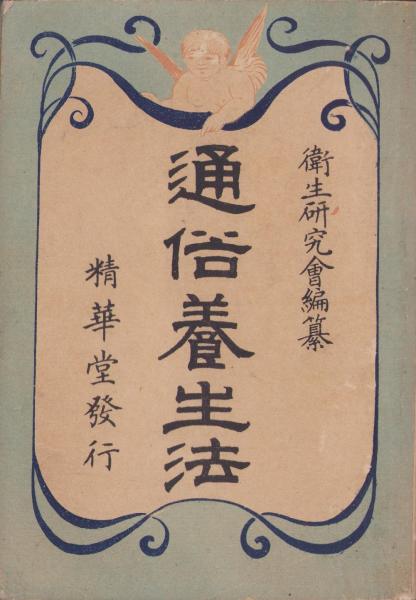 衛生研究會編纂
通俗養生法
精華堂發行